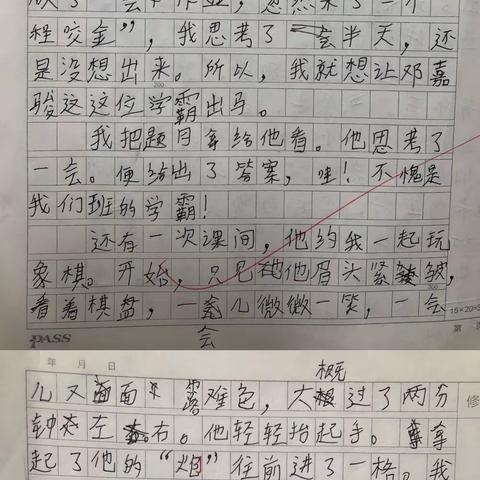 程咬金”，我思考了会半天，还
是没想出来。所以，我就想让邓嘉
骏这这位学霸出马。
200
我把题目拿给他看。他思考了
一会。便给出了答案，哇！不愧是
我们班的学霸！
还有一次课间，他约我一起玩
象棋。开始，只见他他眉头紧皱，
300
看着棋盘，一会儿微微一笑，一会
15×20=3
PASS
第
年 月 日
儿又面露难色，大概过了两分
修
钟左右。他轻轻抬起手。拿
起了他的“炮”往前进了一格。我